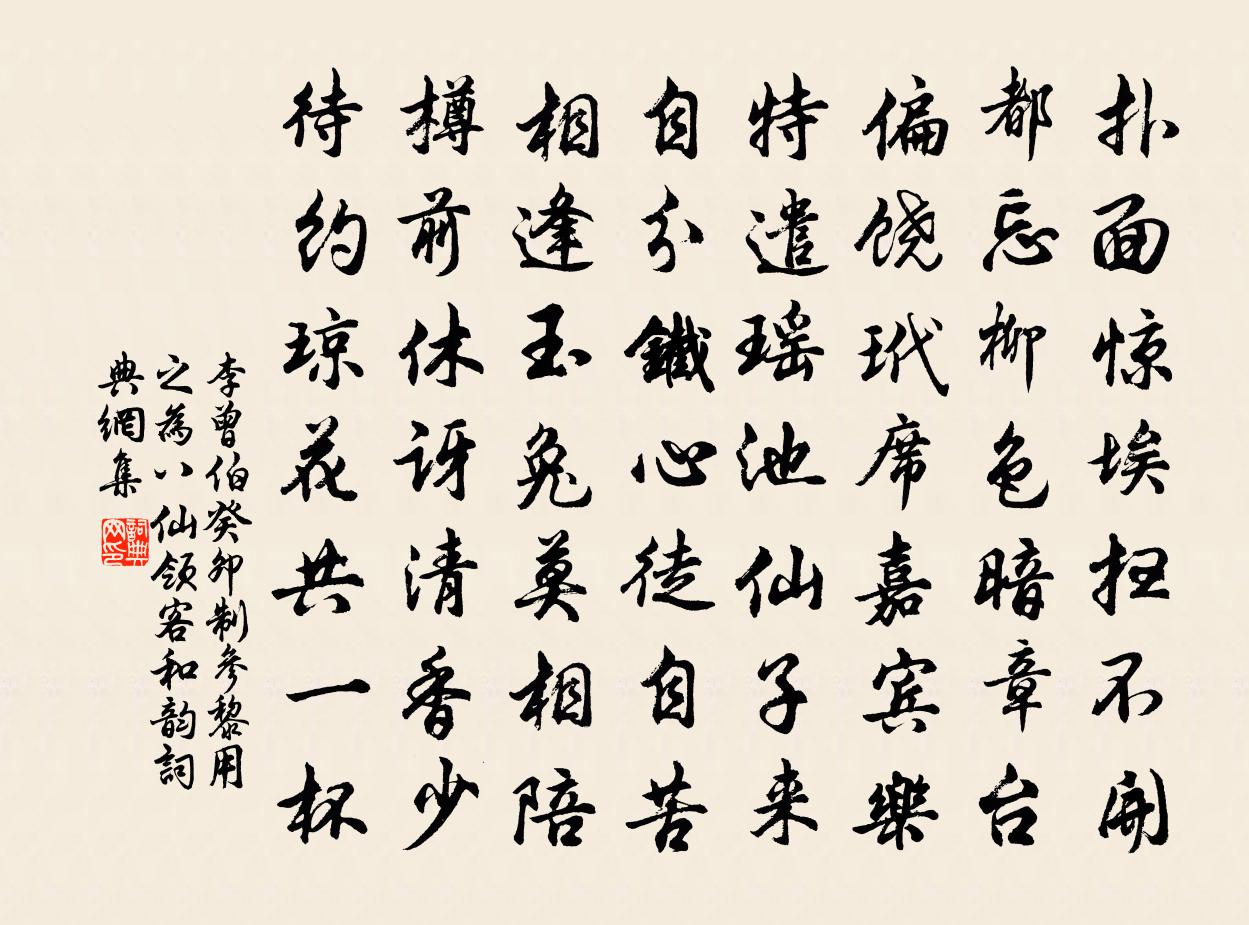 扑面惊埃扫不開
都忘柳色暗章台
偏饶玳席嘉宾樂
特遣瑶池仙子来
自分鐵心徒自苦
相逢玉兔莫相陪
樽前休讶清香少
待约琼花共一杯
李曾伯癸卯制參黎用
之為八仙领客和韵詞
典網集
詞典
网印